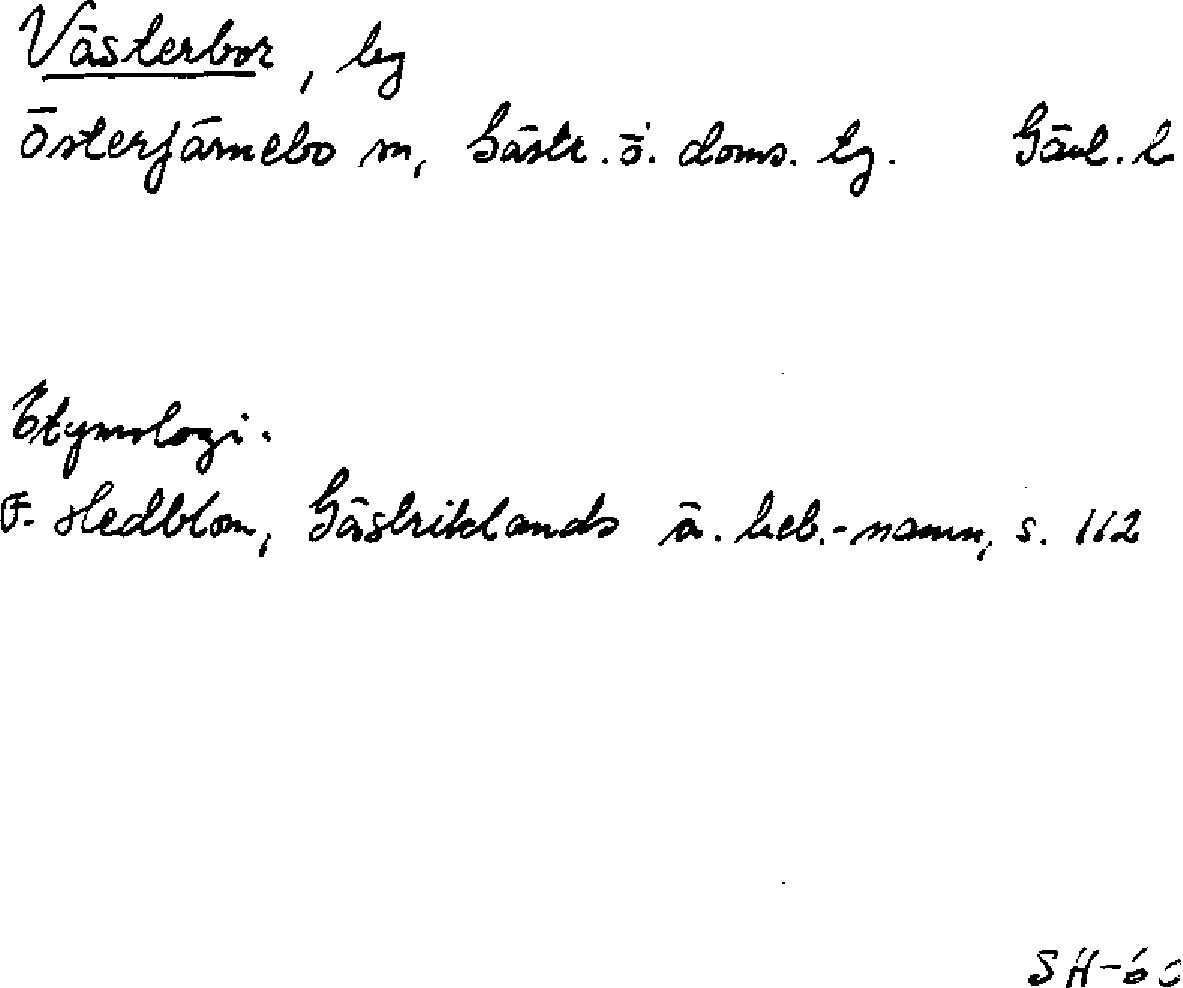 Västerbor, by
Österfärnebo sn, Gästr. ö. doms. lg. Gävl. l
Etymologi.
F. Hedblom, Gästriklands ä. beb.-namn, s. 112
SH-60